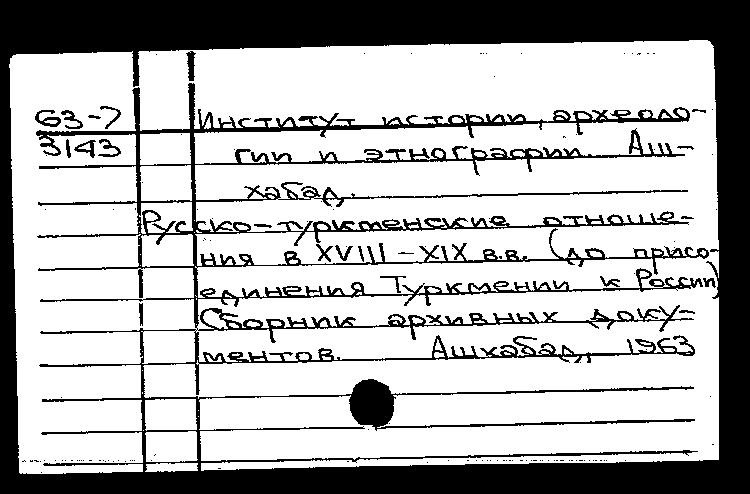 63-7
3143
Институт истории, археоло-
гии и этнографии. Аш-
хабад.
Русско-туркменские отноше-
ния в XVIII-XIX в.в. (до присо-
единения Туркмении к России)
Сборник архивных доку-
ментов. Ашхабад, 1963